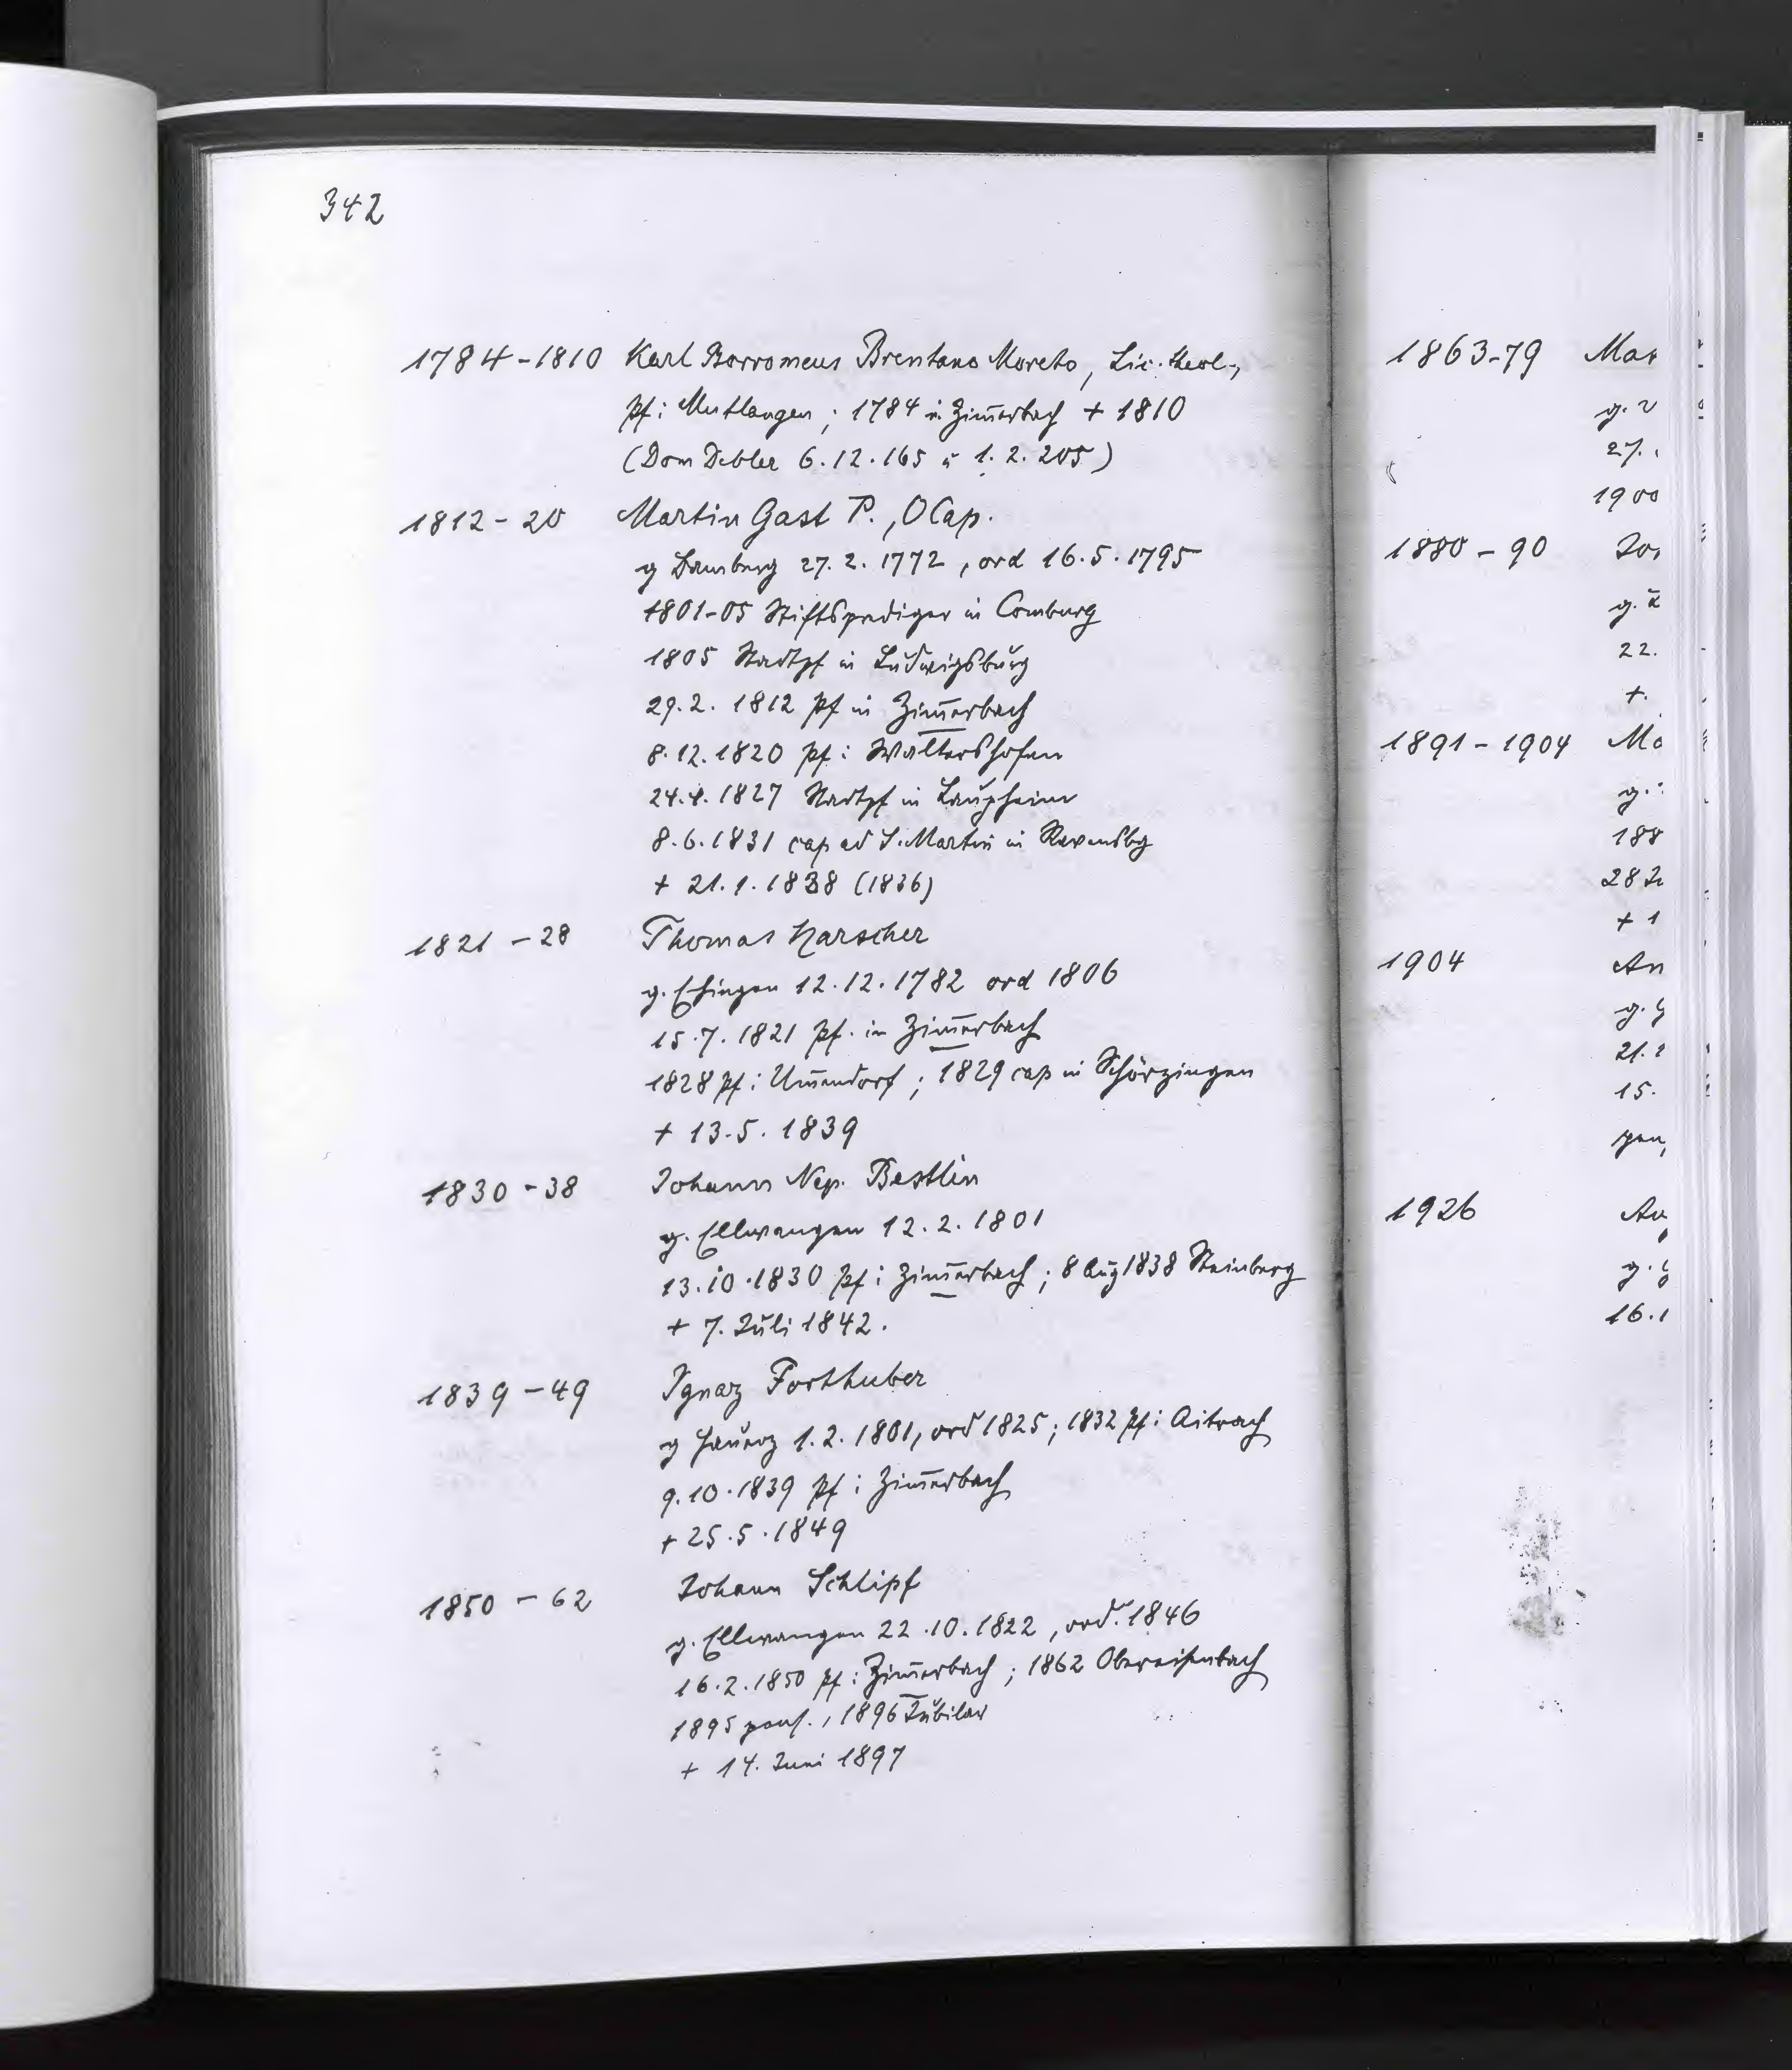 342
1784-1810 Karl Borromeus Brentano Moreto, Lic. theol.,
Pf i Mutlangen; 1784 in Zim̄erbach + 1810
(Dom Debler 6.12.165 u 1.2.205)
1812-20 Martin Gast P., OCap.
g 27.2.1772, ord 16.5.1795
1801-05 Stiftsprediger in Comburg
1805 Stadtpf in Ludwigsburg
29.2.1812 Pf in Zim̄erbach
8.12.1820 Pf i Waltershofen
24.4.1827 Stadtpf in Laupheim
8.6.1831 cap ad S. Martin in Ravensbg
+ 21.1.1838 (1836)
1821-28 Thomas Harscher
g. Ehingen 12.12.1782 ord 1806
15.7.1821 Pf. in Zim̄erbach
1828 Pf i Um̄endorf; 1829 cap in Schörzingen
+ 13.5.1839
1830-38 Johann Nep. Bestlin
g. Ellwangen 12.2.1801
13.10.1830 Pf i Zim̄erbach; 8 Aug 1838 Steinberg
+ 7. Juli 1842.
1839-49 Ignaz Forthuber
g Hauerz 1.2.1801, ord 1825; 1832 Pf i Aitrach
9.10.1839 Pf i Zim̄erbach
+ 25.5.1849
1850-62 Johann Schlipf
g. Ellwangen 22.10.1822, ord. 1846
16.2.1850 Pf i Zim̄erbach; 1862 Obereisenbach
1895 pens., 1896 Jubilar
+ 14. Juni 1897
1863-79 Mar
g.
27.
1900
1880-90 Jos
g.
22.
+.
1891-1904 Ma
g.
188
28
+ 1
1904 An
g.
21.
15.
pen
1926 Au
g.
16.1